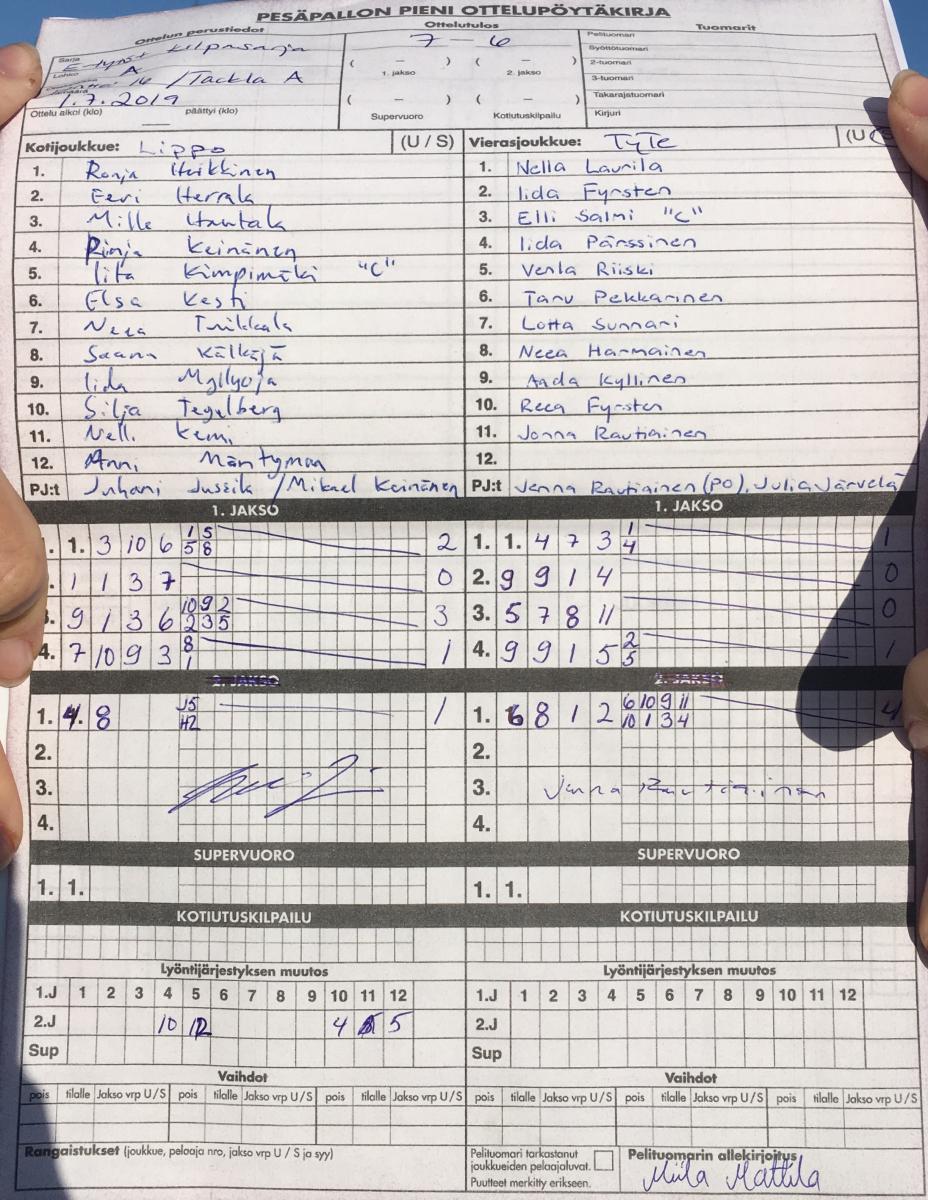 PESÄPALLON PIENI OTTELUPÖYTÄKIRJA
Ottelun perustiedot
Ottelutulos
Tuomarit
Sarja E-tytöt kilpasarja
Lohko A
/Tackla A
1.7.2019
Ottelu alkoi (klo) päättyi (klo)
7 - 6
( - ) ( - )
1. jakso 2. jakso
( - ) ( - )
Supervuoro Kotiutuskilpailu
Pelituomari
Syöttötuomari
2-tuomari
3-tuomari
Takarajatuomari
Kirjuri
Kotijoukkue: Lippo (U / S)
1. Ronja Heikkinen
2. Eevi Herrala
3. Mille Hautala
4. Pinja Keinänen
5. Iita Kimpimäki "C"
6. Elsa Kesti
7. Neea Tuikkala
8. Saana Kälkäjä
9. Iida Myllyoja
10. Silja Tegelberg
11. Nelli Kemi
12. Anni Mäntymaa
PJ:t Juhani Jussila / Mikael Keinänen
Vierasjoukkue: TyTe (U / S)
1. Nella Laurila
2. Iida Fyrsten
3. Elli Salmi "C"
4. Iida Pärssinen
5. Venla Riiski
6. Taru Pekkarinen
7. Lotta Sunnari
8. Neea Harmainen
9. Aada Kyllinen
10. Reea Fyrsten
11. Jonna Rautiainen
12.
PJ:t Jenna Rautiainen (PO), Julia Järvelä
1. JAKSO
1. 1. 3 10 6 1 5 2
5 8
1 1 3 7 0
3. 9 1 3 6 10 9 2 3
2 3 5
4. 7 10 9 3 8 1
1
2. JAKSO
1. 4. 8 J5 1
H2
2.
3.
4.
1. JAKSO
1. 1. 4 7 3 1 1
4
2. 9 9 1 4 0
3. 5 7 8 11 0
4. 9 9 1 5 2 1
5
2. JAKSO
1. 6 8 1 2 6 10 9 11 4
10 1 3 4
2.
3. Jenna Rautiainen
4.
SUPERVUORO
1. 1.
SUPERVUORO
1. 1.
KOTIUTUSKILPAILU
KOTIUTUSKILPAILU
Lyöntijärjestyksen muutos
1.J 1 2 3 4 5 6 7 8 9 10 11 12
2.J 10 12 4 5
Sup
Lyöntijärjestyksen muutos
1.J 1 2 3 4 5 6 7 8 9 10 11 12
2.J
Sup
Vaihdot
pois tilalle Jakso vrp U/S pois tilalle Jakso vrp U/S pois tilalle Jakso vrp U/S
Vaihdot
pois tilalle Jakso vrp U/S pois tilalle Jakso vrp U/S pois tilalle Jakso vrp U/S
Rangaistukset (joukkue, pelaaja nro, jakso vrp U / S ja syy)
Pelituomari tarkastanut
joukkueiden pelaajaluvat.
Puutteet merkitty erikseen.
Pelituomarin allekirjoitus
Miila Mattila